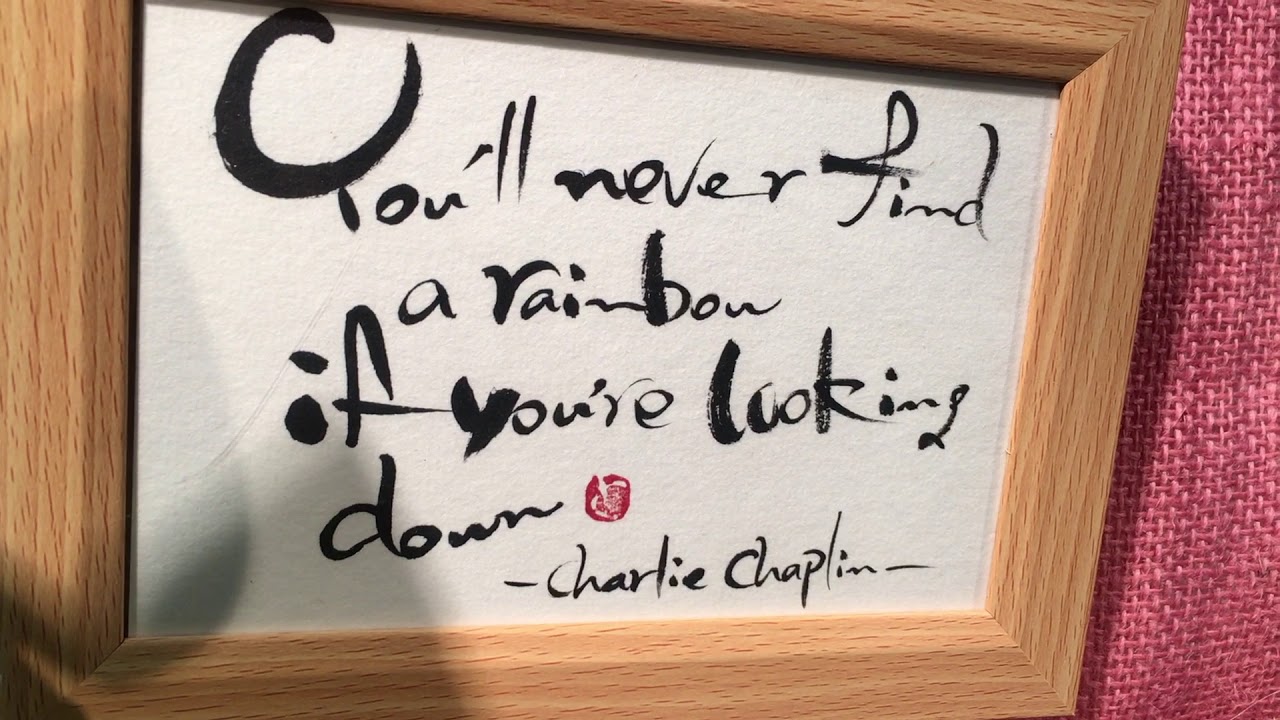 You'll never find
a rainbow
if you're looking
down
-Charlie Chaplin-